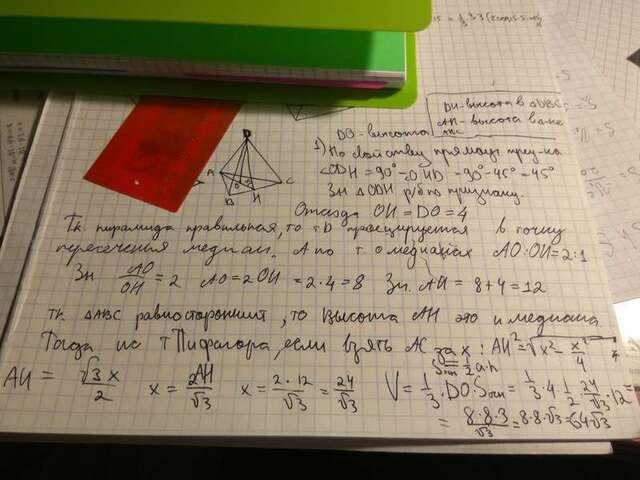 DH-высота в △DBC
AH-высота в ABC
DO-высота
1) По свойству прямоуг треу-ка
∠ODH=90°-OHD=90°-45°=45°
Зн △ODH р/б по признаку.
Отсюда OH=DO=4
D
A
B
O
H
C
Тк. пирамида правильная, то т.D проецируется в точку
пересечения медиан. А по т. о медианах AO:OH=2:1
Зн AO/OH=2 AO=2OH=2·4=8 Зн. AH=8+4=12
тк. △ABC равносторонний, то высота AH это и медиана.
Тогда из т Пифагора, если взять AC за x: AH²=√x²-x²/4
AH=√3x/2 x=2AH/√3 x=2·12/√3=24/√3
Sосн=1/2a·h
V=1/3·DO·Sосн=1/3·4·1/2·24/√3·12=
=8·8·3/√3=8·8·√3=64√3